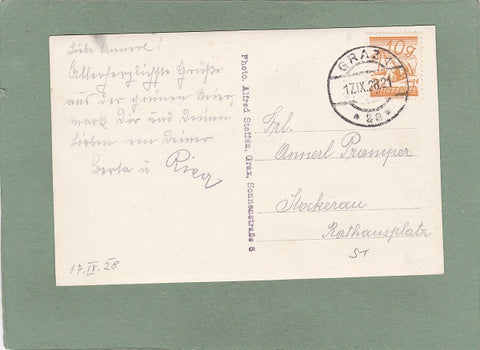 Liebe Annerl!
Allerherzlichste Grüße
aus der grünen Steier-
mark Dir und Deinen
Lieben von Deiner
Berta u
17.IX.28
Photo. Alfred Steffen, Graz, Sonnenstraße 6
10g
GRAZ 1
17.IX.28.21
* 8a *
Frl.
Annerl Promper
Stockerau
Rathausplatz